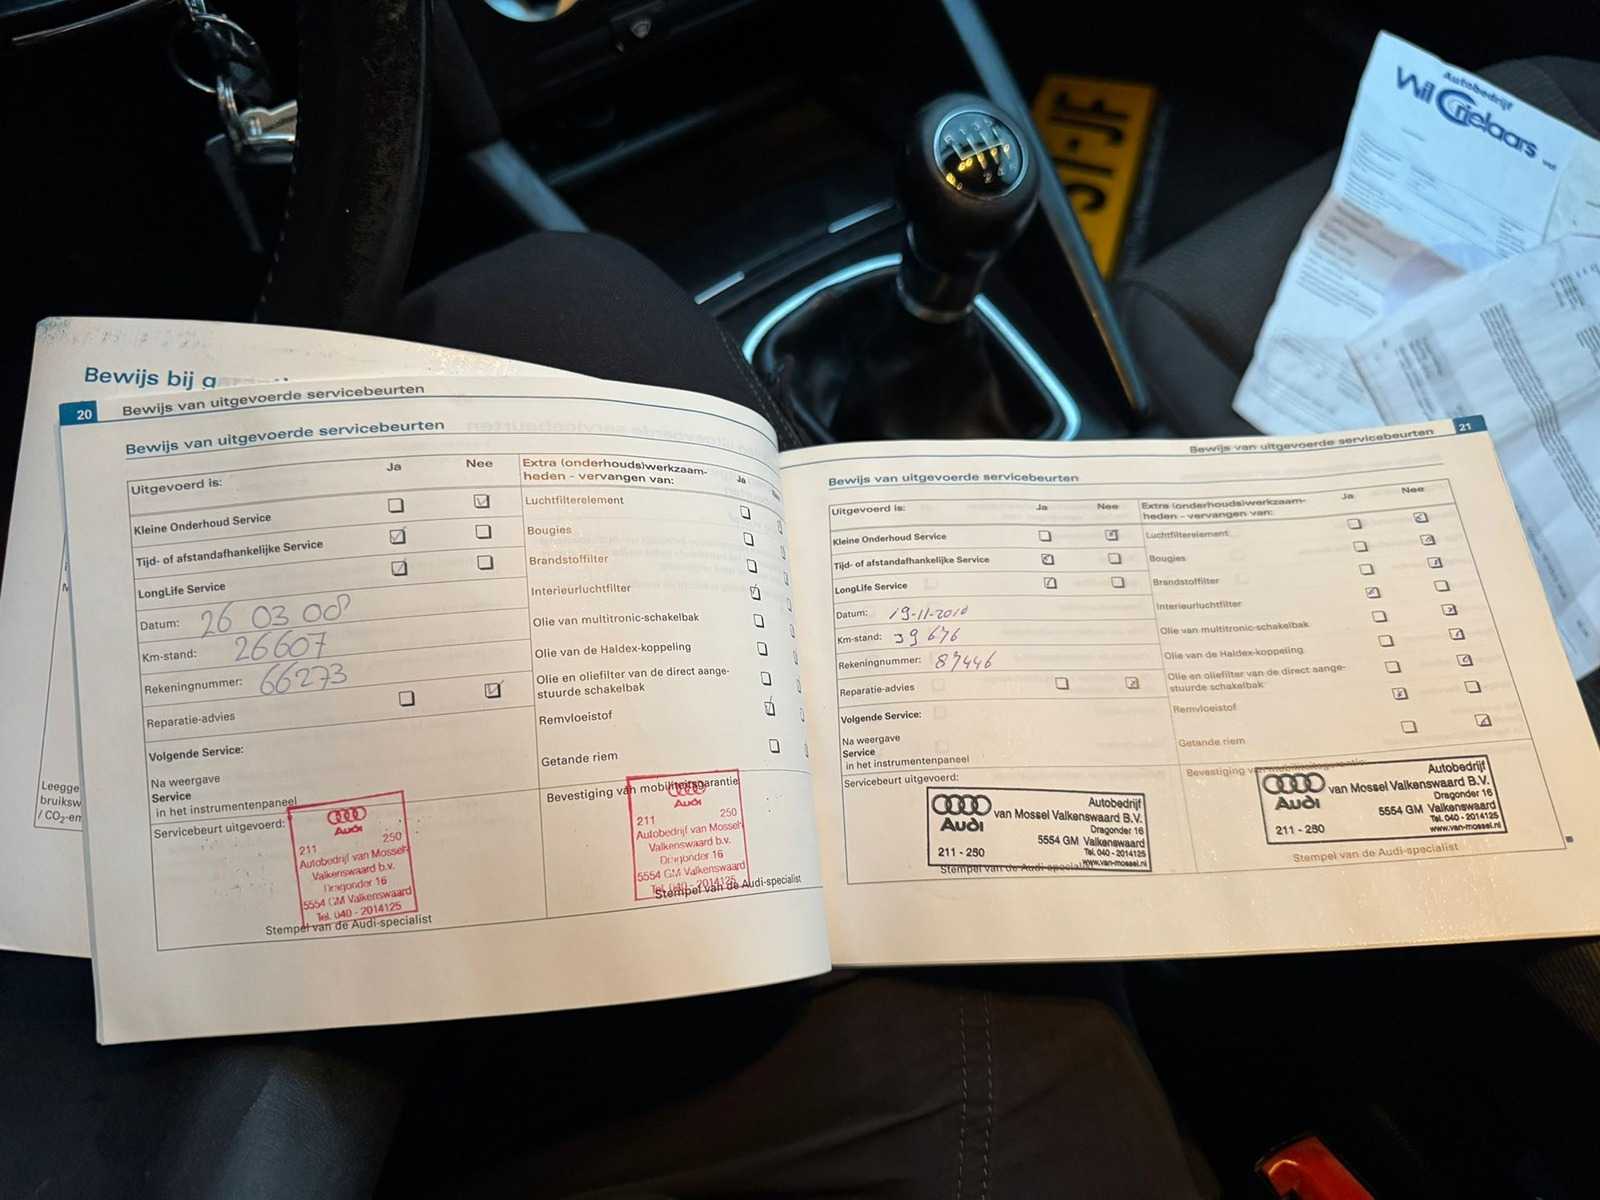 Autobedrijf
Wil Crielaars vof
ST-JF
Bewijs bij
20 Bewijs van uitgevoerde servicebeurten
Bewijs van uitgevoerde servicebeurten
Uitgevoerd is: Ja Nee
Kleine Onderhoud Service
Tijd- of afstandafhankelijke Service
LongLife Service
Datum: 26 03 08
Km-stand: 26607
Rekeningnummer: 66273
Reparatie-advies
Volgende Service:
Na weergave
Service
in het instrumentenpaneel
Servicebeurt uitgevoerd:
Audi
211 250
Autobedrijf van Mossel
Valkenswaard b.v.
Dragonder 16
5554 GM Valkenswaard
Tel. 040 - 2014125
Stempel van de Audi-specialist
Extra (onderhouds)werkzaam-
heden - vervangen van: Ja
Luchtfilterelement
Bougies
Brandstoffilter
Interieurluchtfilter
Olie van multitronic-schakelbak
Olie van de Haldex-koppeling
Olie en oliefilter van de direct aange-
stuurde schakelbak
Remvloeistof
Getande riem
Bevestiging van mobiliteitsgarantie
Audi
211 250
Autobedrijf van Mossel
Valkenswaard b.v.
Dragonder 16
5554 GM Valkenswaard
Tel. 040 - 2014125
Stempel van de Audi-specialist
Leegge
bruiksw
/ CO2-em
Bewijs van uitgevoerde servicebeurten 21
Bewijs van uitgevoerde servicebeurten
Uitgevoerd is: Ja Nee
Kleine Onderhoud Service
Tijd- of afstandafhankelijke Service
LongLife Service
Datum: 19-11-2010
Km-stand: 39676
Rekeningnummer: 87446
Reparatie-advies
Volgende Service:
Na weergave
Service
in het instrumentenpaneel
Servicebeurt uitgevoerd:
Audi
Autobedrijf
van Mossel Valkenswaard B.V.
Dragonder 16
5554 GM Valkenswaard
211 - 250 Tel. 040 - 2014125
www.van-mossel.nl
Stempel van de Audi-specialist
Extra (onderhouds)werkzaam-
heden - vervangen van: Ja Nee
Luchtfilterelement
Bougies
Brandstoffilter
Interieurluchtfilter
Olie van multitronic-schakelbak
Olie van de Haldex-koppeling
Olie en oliefilter van de direct aange-
stuurde schakelbak
Remvloeistof
Getande riem
Bevestiging van mobiliteitsgarantie
Audi
Autobedrijf
van Mossel Valkenswaard B.V.
Dragonder 16
5554 GM Valkenswaard
211 - 250 Tel. 040 - 2014125
www.van-mossel.nl
Stempel van de Audi-specialist